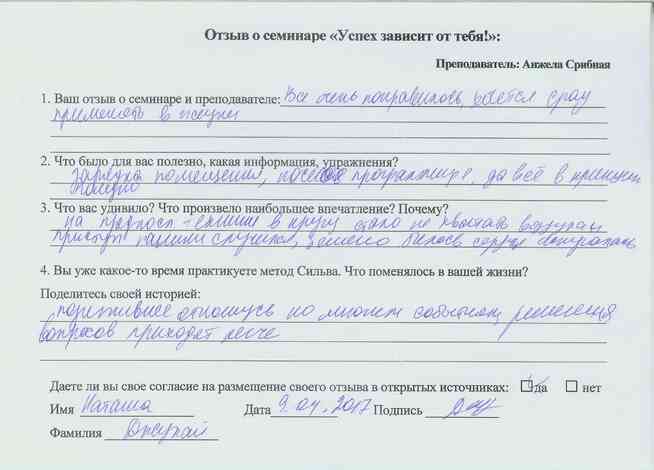 Отзыв о семинаре «Успех зависит от тебя!»:
Преподаватель: Анжела Срибная
1. Ваш отзыв о семинаре и преподавателе: Все очень понравилось, хочется сразу
применять в жизни
2. Что было для вас полезно, какая информация, упражнения?
зарядка помещения, программу, да всё в принципе
полезно
3. Что вас удивило? Что произвело наибольшее впечатление? Почему?
на в кругу стало не хватать воздуха
приступ случился, сердце
4. Вы уже какое-то время практикуете метод Сильва. Что поменялось в вашей жизни?
Поделитесь своей историей:
позитивнее отношусь ко многим событиям, решения
вопросов приходят легче
Даете ли вы свое согласие на размещение своего отзыва в открытых источниках: да нет
Имя Наташа Дата 9.04.2017 Подпись
Фамилия